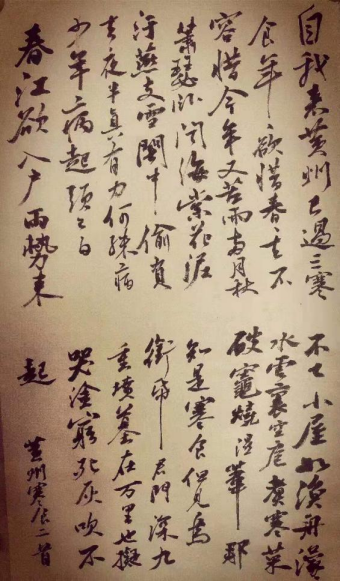 自我来黄州已過三寒
食年ゝ欲惜春去不
容惜今年又苦雨兩月秋
蕭瑟卧聞海棠花泥
汙燕支雪闇中偷負
去夜半真有力何殊病
少年病起頭已白
春江欲入户雨勢来
不已小屋如漁舟濛
水雲裏空庖煮寒菜
破竈燒濕葦那
知是寒食但見烏
銜帋君門深九
重墳墓在万里也擬
哭塗窮死灰吹不
起
黄州寒食二首